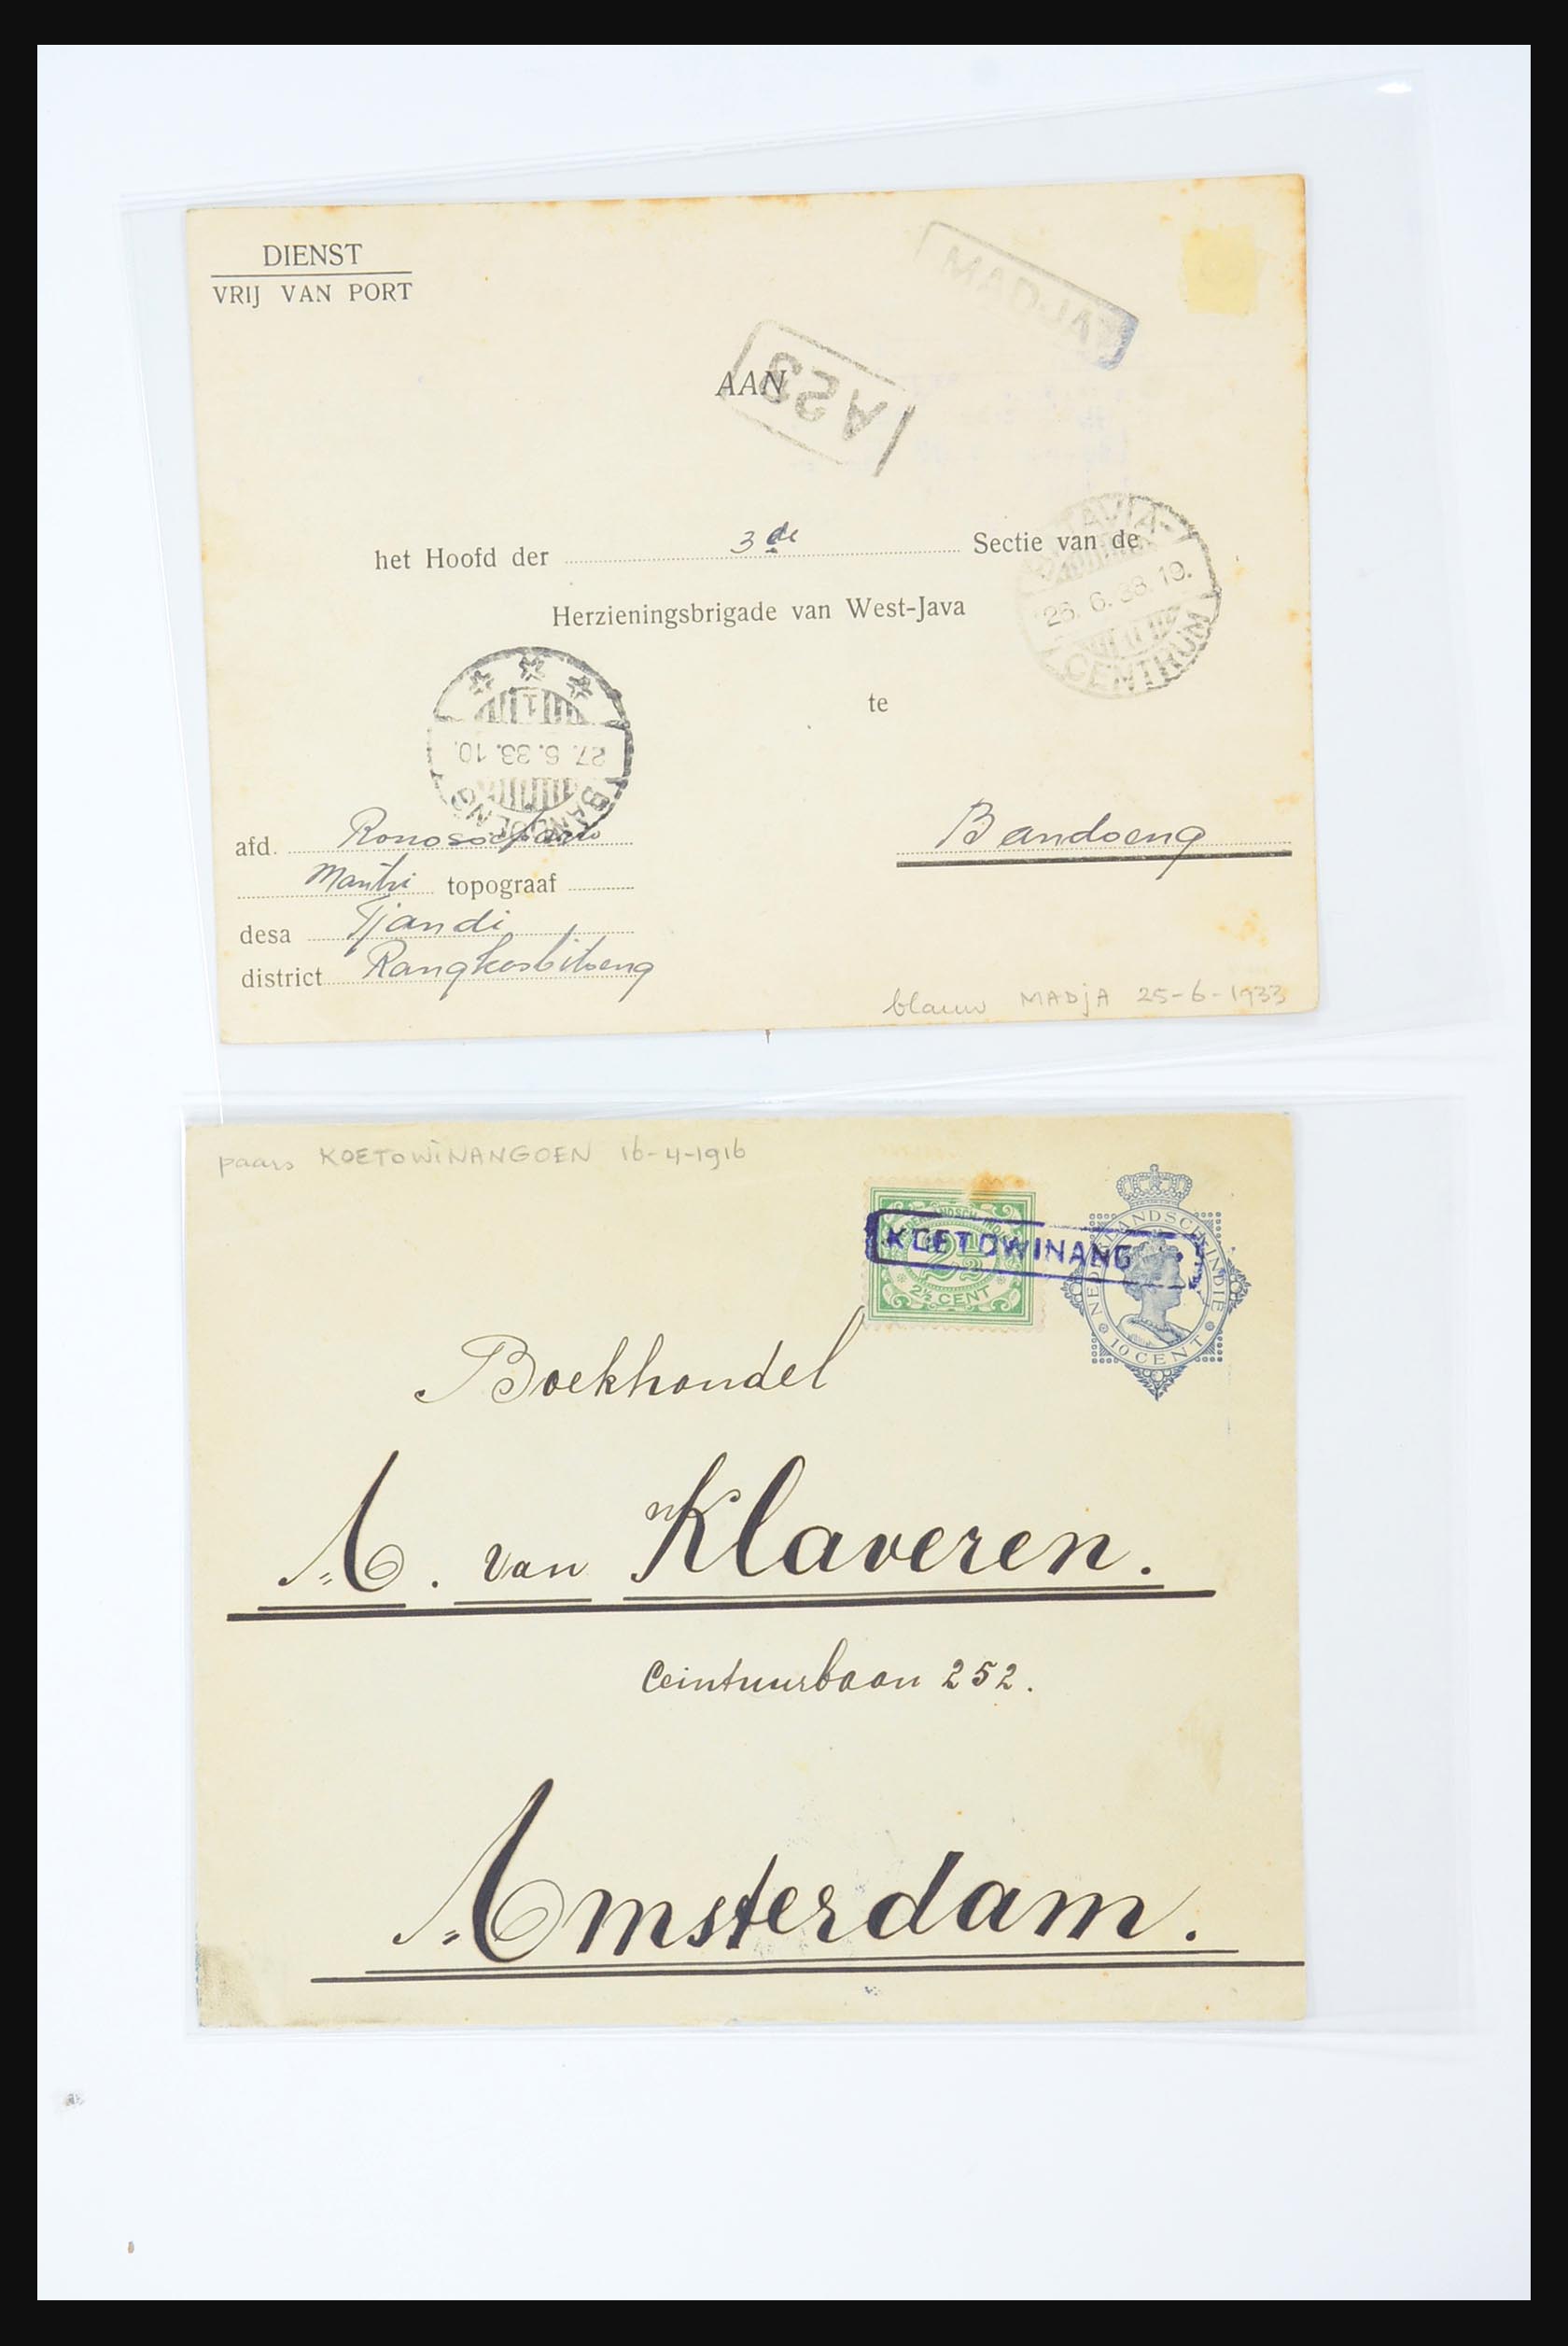 DIENST
VRIJ VAN PORT
MADJA
AAN
A29
het Hoofd der 3de Sectie van de
Herzieningsbrigade van West-Java
CENTRUM
27. 6. 33. 10.
BANDOENG
te
Bandoeng
afd.
Mantri topograaf
desa Tjandi
district Rangkasbitoeng
blauw MADjA 25-6-1933
paars KOETOWiNANGOEN 16-4-1916
2½ CENT
KOETOWINANG
NEDERLANDSCH-INDIE
10 CENT
Boekhandel
A. van Klaveren.
Ceintuurbaan 252.
Amsterdam.